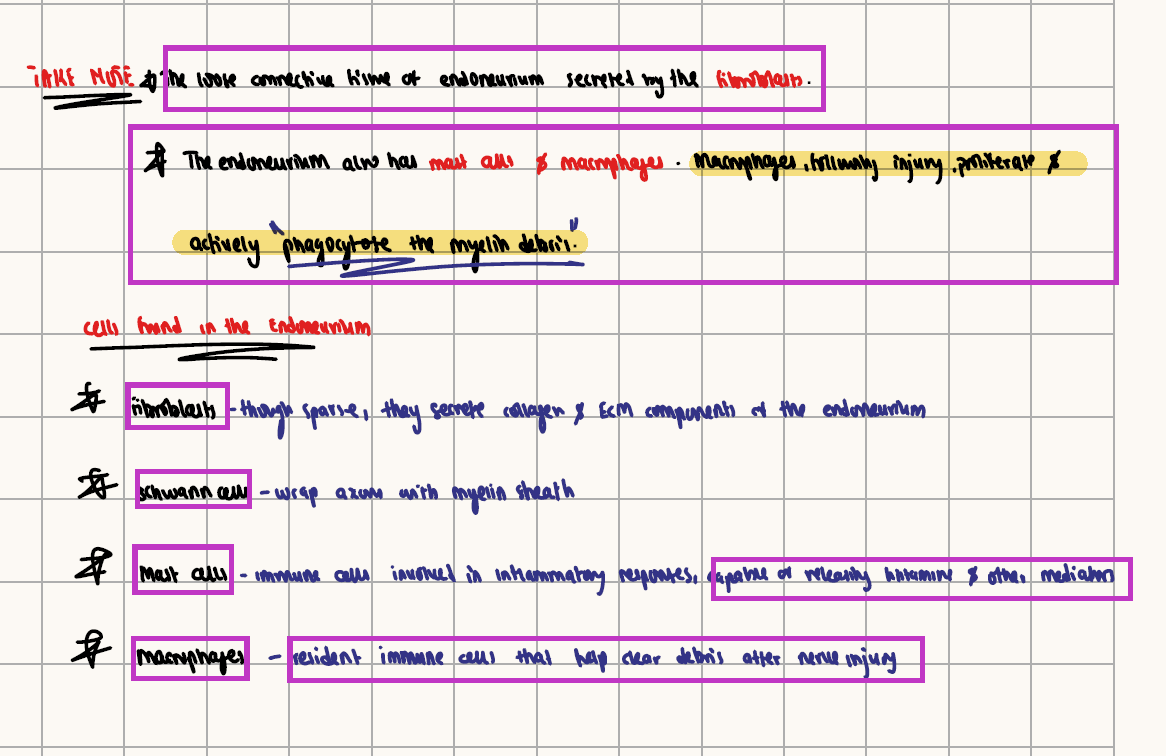 TAKE NOTE ☆ The loose connective tissue of endoneurium secreted by the fibroblasts.
☆ The endoneurium also has mast cells & macrophages. Macrophages, following injury, proliferate &
actively "phagocytose the myelin debris".
cells found in the Endoneurium
☆ Fibroblasts - though sparse, they secrete collagen & ECM components of the endoneurium
☆ schwann cells - wrap axons with myelin sheath
☆ Mast cells - immune cells involved in inflammatory responses, capable of releasing histamine & other mediators
☆ Macrophages - resident immune cells that help clear debris after nerve injury